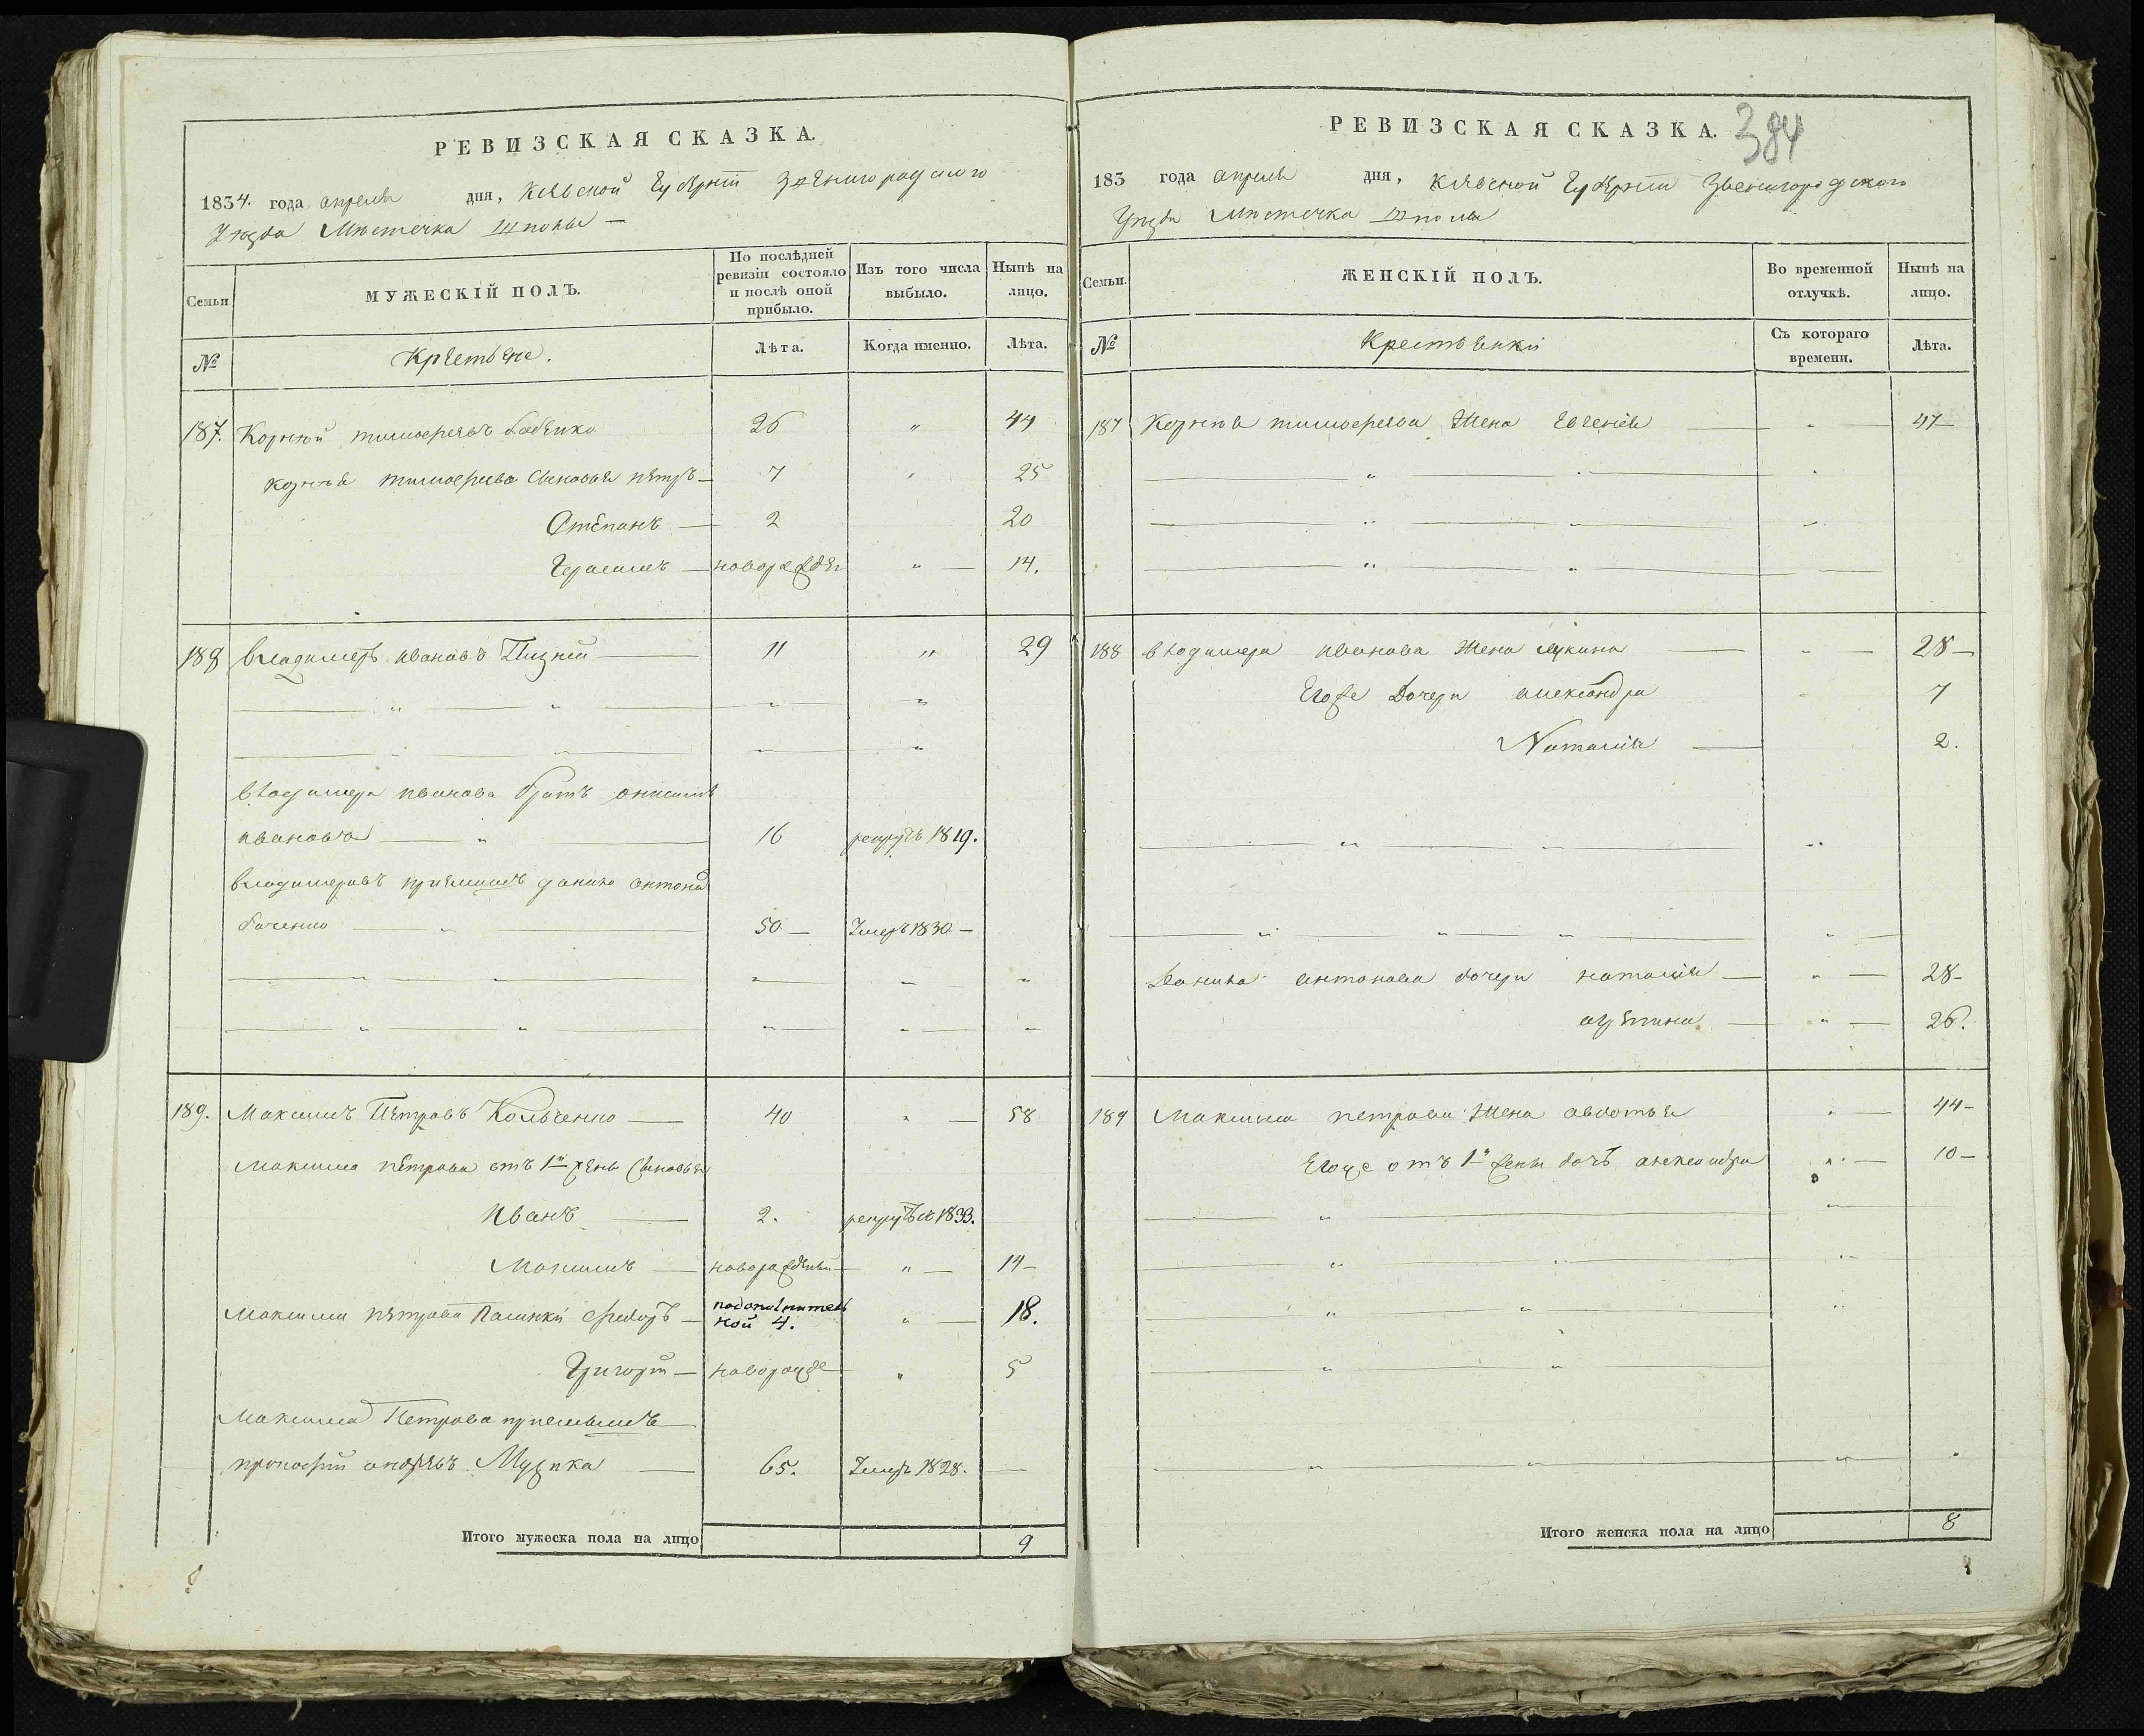 РЕВИЗСКАЯ СКАЗКА.
1834. года апреля дня, Кіевской Губерніи Звенигородского
Уезда Местечка Шполы
Семьи МУЖЕСКІЙ ПОЛЪ. По послѣдней ревизіи состояло и послѣ оной прибыло. Изъ того числа выбыло. Нынѣ на лицо.
№ Крестьяне. Лѣта. Когда именно. Лѣта.
187. Корней тимофеевъ бабенко 26 " 44
корнея тимофеева Сыновья петръ 7 " 25
Степанъ 2 20
Герасимъ новорожден " 14.
188 владимеръ ивановъ 11 " 29
владимера иванова братъ онисимъ
ивановъ 16 рекрутъ 1819.
владимеровъ приемышъ данило антонов
50 Умеръ 1830
189. Максимъ Петровъ 40 " 58
Максима петрова отъ 1й жены Сыновья
Иванъ 2. рекрутъ въ 1833.
Максимъ новорожденый " 14
Максима петрова Пасынки Федоръ подополнитель ной 4. " 18.
Григорій новорожде " 5
Максима Петрова приемышъ
прокофий андреевъ Музика 65. Умеръ 1828.
Итого мужеска пола на лицо 9
РЕВИЗСКАЯ СКАЗКА. 384
183 года апреля дня, Кіевской Губерніи Звенигородского
Уезда Местечка Шполы
Семьи. ЖЕНСКІЙ ПОЛЪ. Во временной отлучкѣ. Нынѣ на лицо.
№ Крестьянки Съ котораго времени. Лѣта.
187 Корнея тимофеева Жена Евгенія 47
188 владимера иванова Жена 28
Егоже Дочери александра 7
Наталия 2.
Данила антонова дочери наталия 28
26.
189 Максима петрова Жена авдотья 44
Егоже отъ 1й жены дочь александра 10
Итого женска пола на лицо 8